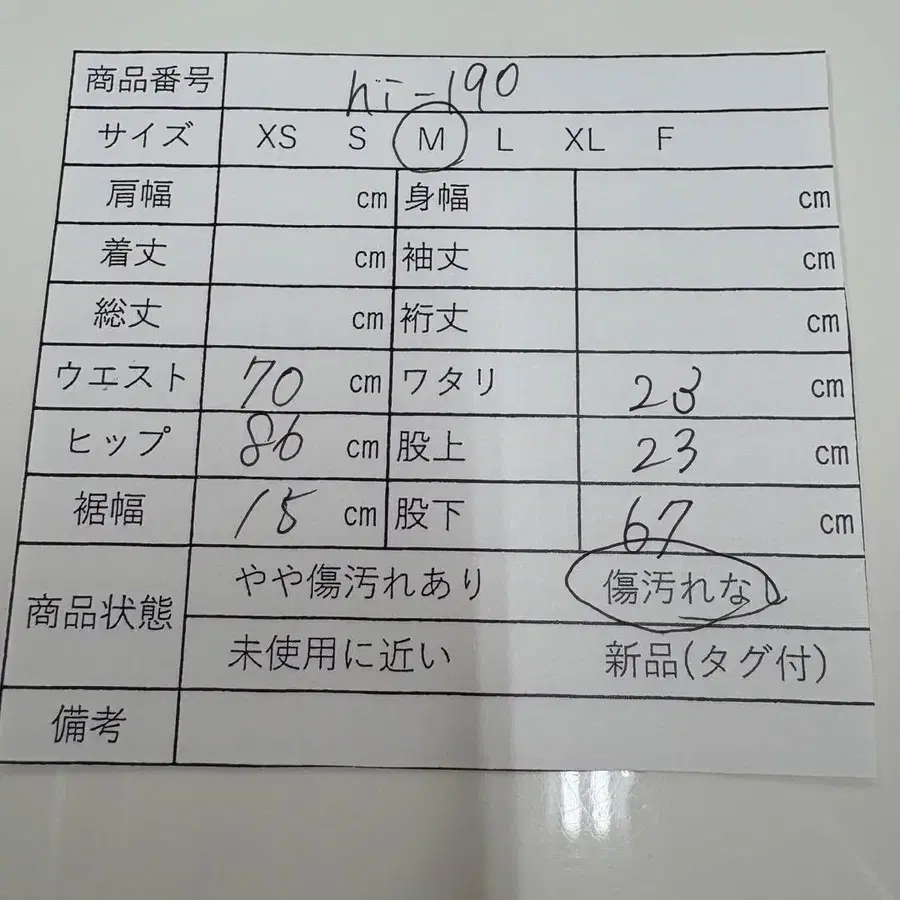 商品番号 hi-190
サイズ XS S M L XL F
肩幅 cm 身幅 cm
着丈 cm 袖丈 cm
総丈 cm 裄丈 cm
ウエスト 70 cm ワタリ 23 cm
ヒップ 86 cm 股上 23 cm
裾幅 15 cm 股下 67 cm
商品状態 やや傷汚れあり 傷汚れなし
未使用に近い 新品(タグ付)
備考